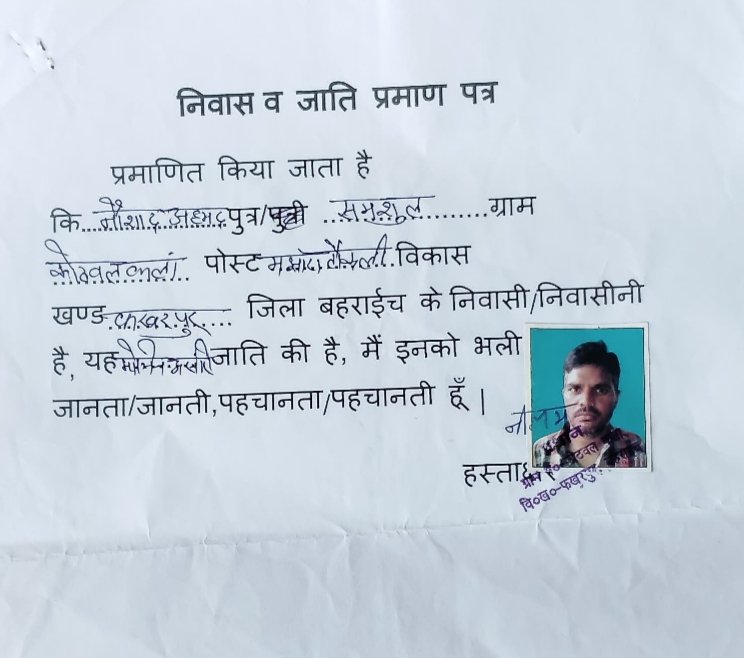 निवास व जाति प्रमाण पत्र
प्रमाणित किया जाता है
कि....नौशाद अहमद पुत्र/पुत्री ...समशुल.........ग्राम
कोठवल कलां.. पोस्ट विकास
खण्ड..फखरपुर.... जिला बहराईच के निवासी/निवासीनी
है, यह जाति की है, मैं इनको भली
जानता/जानती,पहचानता/पहचानती हूँ |
हस्ताक्षर
वि०ख०-फखरपुर